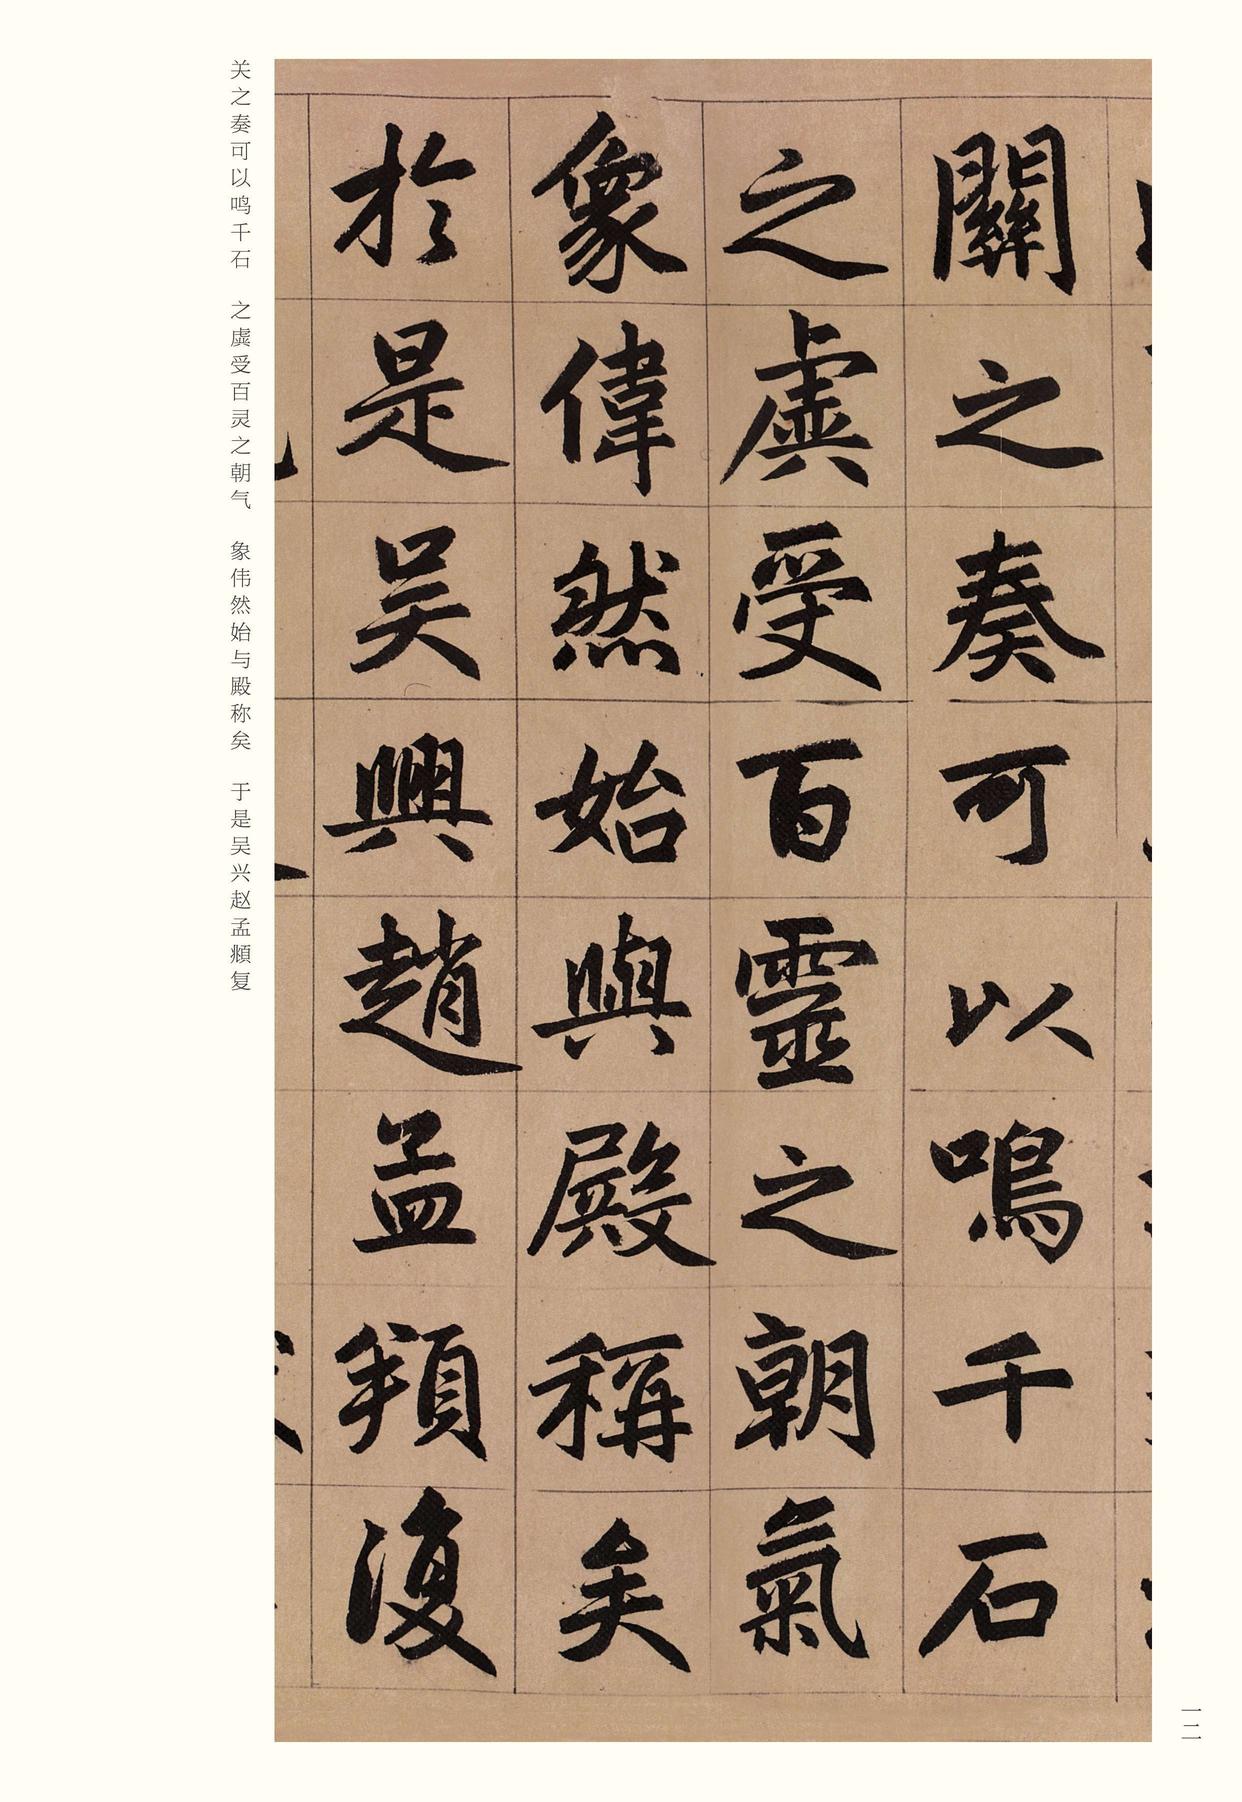 關之奏可以鳴千石
之虡受百靈之朝氣
象偉然始與殿稱矣
於是吴興趙孟頫復
关之奏可以鸣千石　之虡受百灵之朝气　象伟然始与殿称矣　于是吴兴赵孟頫复
一二